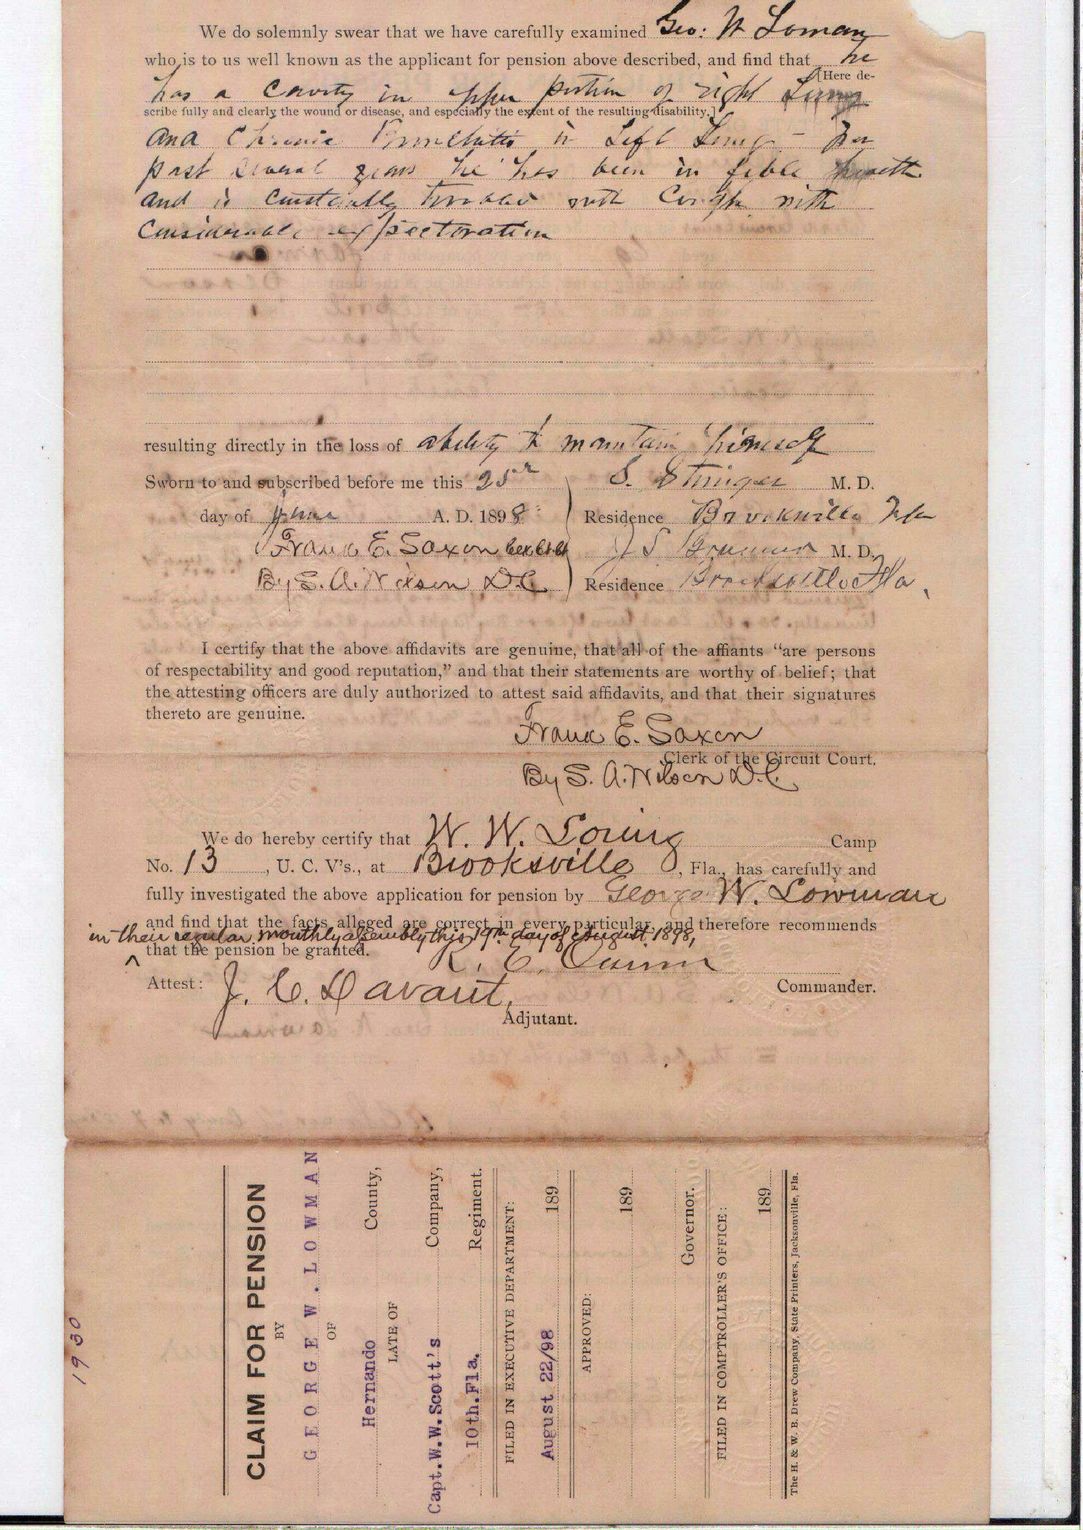 We do solemnly swear that we have carefully examined Geo: W Loman
who is to us well known as the applicant for pension above described, and find that he
[Here de-
has a cavity in upper portion of right Lung
scribe fully and clearly the wound or disease, and especially the extent of the resulting disability.]
and Chronic Bronchitis in Left Lung - for
past several years he has been in feble health
and is constantly troubled with Cough with
considerable expectoration
resulting directly in the loss of ability to maintain himself
Sworn to and subscribed before me this 25"
S. Stringer M. D.
day of June A. D. 1898
Residence Brooksville Fla
Frank E. Saxon
J S M. D.
By S. A. Wilson D.C.
Residence Brooksville Fla,
I certify that the above affidavits are genuine, that all of the affiants “are persons
of respectability and good reputation,” and that their statements are worthy of belief; that
the attesting officers are duly authorized to attest said affidavits, and that their signatures
thereto are genuine.
Frank E. Saxon
Clerk of the Circuit Court.
By S. A. Wilson D.C.
We do hereby certify that W. W. Loring Camp
No. 13, U. C. V's., at Brooksville, Fla., has carefully and
fully investigated the above application for pension by George W. Lowman
and find that the facts alleged are correct in every particular, and therefore recommends
in their regular monthly assembly this 19th day of August, 1898,
^ that the pension be granted.
Attest: J. C. Davant,
Commander.
Adjutant.
CLAIM FOR PENSION
BY
GEORGE W. LOWMAN
OF
Hernando County,
LATE OF
Capt. W. W. Scott's Company,
10th. Fla. Regiment.
FILED IN EXECUTIVE DEPARTMENT:
August 22/98 189
APPROVED:
189
Governor.
FILED IN COMPTROLLER'S OFFICE:
189
The H. & W. B. Drew Company, State Printers, Jacksonville, Fla.
1930